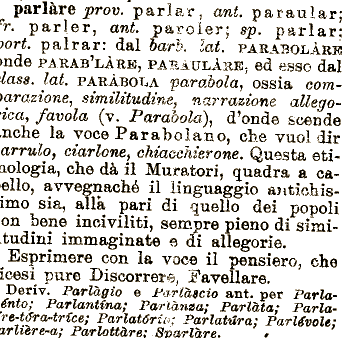 parlàre prov. parlar, ant. paraular;
fr. parler, ant. paroier; sp. parlar;
port. palrar: dal barb. lat. PARABOLÀRE
onde PARAB'LÀRE, PARAULÀRE, ed esso dal
class. lat. PARÀBOLA parabola, ossia com-
parazione, similitudine, narrazione allego-
rica, favola (v. Parabola), d'onde scende
anche la voce Parabolano, che vuol dir
ciarrulo, ciarlone, chiacchierone. Questa eti-
mologia, che dà il Muratori, quadra a ca-
pello, avvegnachè il linguaggio antichis-
simo sia, alla pari di quello dei popoli
non bene inciviliti, sempre pieno di simi-
litudini immaginate e di allegorie.
Esprimere con la voce il pensiero, che
dicesi pure Discorrere, Favellare.
Deriv. Parlàgio e Parlàscio ant. per Parla-
ménto; Parlantìna; Parlànza; Parlàta; Parla-
tóre-tóra-trìce; Parlatório; Parlatúra; Parlévole;
Parlière-a; Parlottàre; Sparlàre.